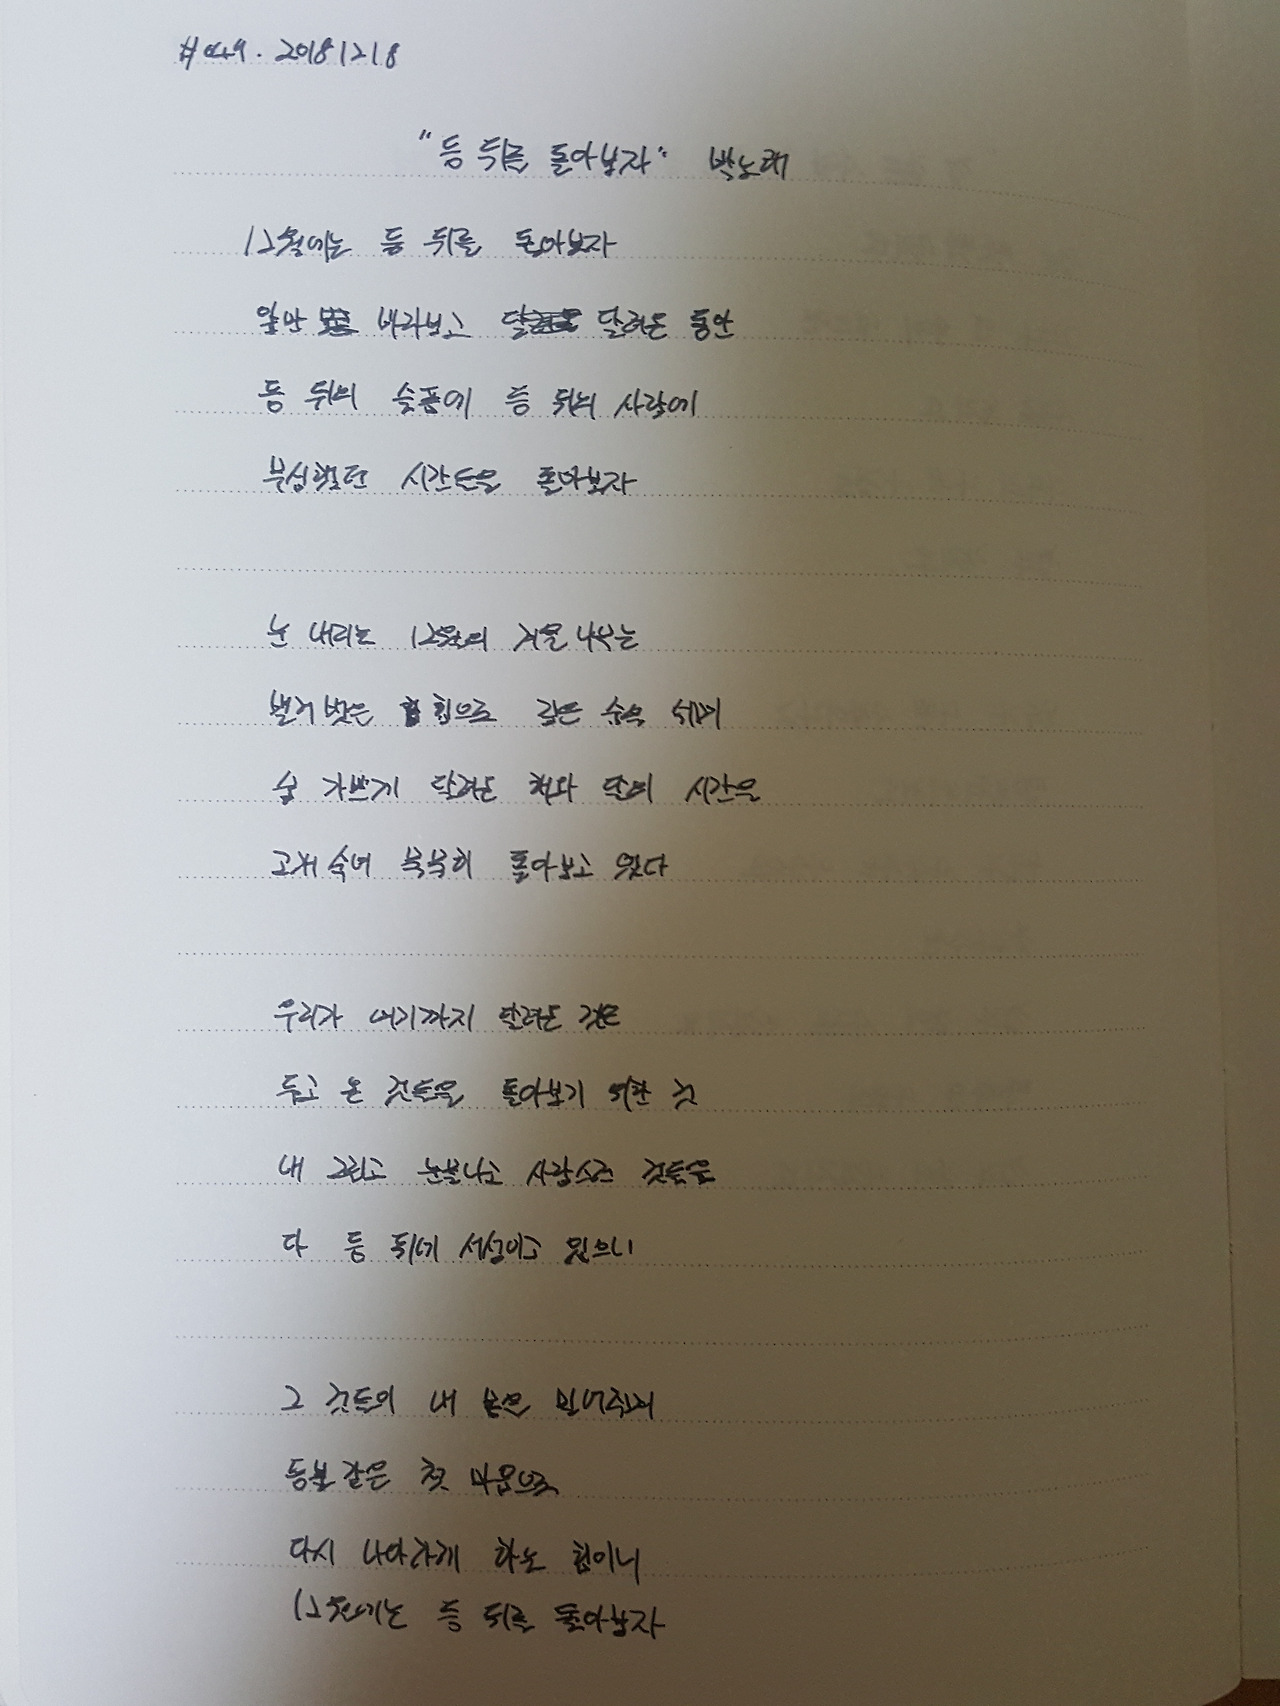 #049. 20181218
"등 뒤를 돌아보자" 박노해
12월에는 등 뒤를 돌아보자
앞만 바라보고 달려온 동안
등 뒤의 슬픔에 등 뒤의 사랑에
무심했던 시간들을 돌아보자
눈 내리는 12월의 겨울나무는
벌거벗은 힘으로 깊은 숨을 쉬며
숨 가쁘게 달려온 해와 달의 시간을
고개 숙여 묵묵히 돌아보고 있다
우리가 여기까지 달려온 것은
두고 온 것들을 돌아보기 위한 것
내 그립고 눈물나고 사랑스런 것들은
다 등 뒤에 서성이고 있으니
그 것들이 내 등을 밀어주며
등불같은 첫 마음으로
다시 나아가게 하는 힘이니
12월에는 등 뒤를 돌아보자